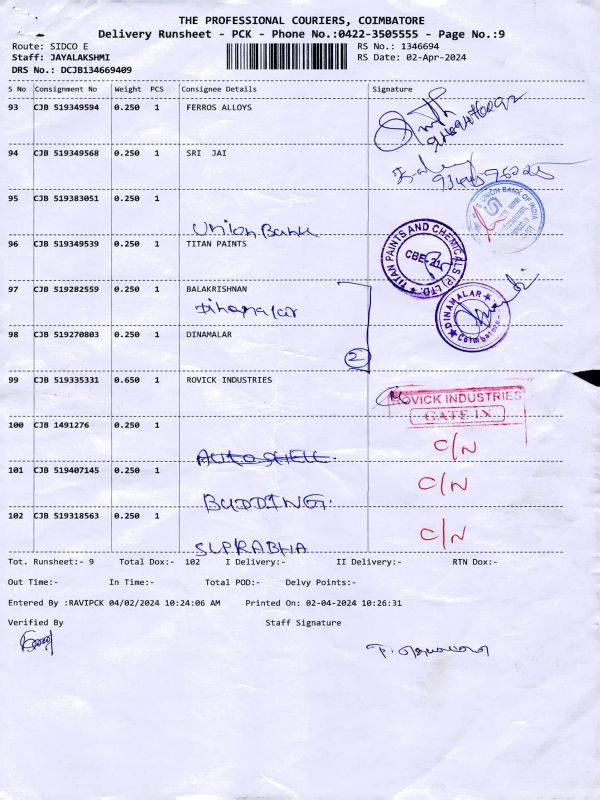 THE PROFESSIONAL COURIERS, COIMBATORE
Delivery Runsheet - PCK - Phone No.:0422-3505555 - Page No.:9
Route: SIDCO E RS No.: 1346694
Staff: JAYALAKSHMI RS Date: 02-Apr-2024
DRS No.: DCJB134669409
S No Consignment No Weight PCS Consignee Details Signature
93 CJB 519349594 0.250 1 FERROS ALLOYS
94 CJB 519349568 0.250 1 SRI JAI
95 CJB 519383051 0.250 1
Union Bank
UNION BANK OF INDIA
96 CJB 519349539 0.250 1 TITAN PAINTS
TITAN PAINTS AND CHEMICALS (P) LTD.
CBE-21
97 CJB 519282559 0.250 1 BALAKRISHNAN
Dinamalar
DINAMALAR
Coimbatore
98 CJB 519270803 0.250 1 DINAMALAR
2
99 CJB 519335331 0.650 1 ROVICK INDUSTRIES
ROVICK INDUSTRIES
GATE IN
100 CJB 1491276 0.250 1
C/N
101 CJB 519407145 0.250 1
BUDDING C/N
102 CJB 519318563 0.250 1
SUPRABHA C/N
Tot. Runsheet:- 9 Total Dox:- 102 I Delivery:- II Delivery:- RTN Dox:-
Out Time:- In Time:- Total POD:- Delvy Points:-
Entered By :RAVIPCK 04/02/2024 10:24:06 AM Printed On: 02-04-2024 10:26:31
Verified By Staff Signature